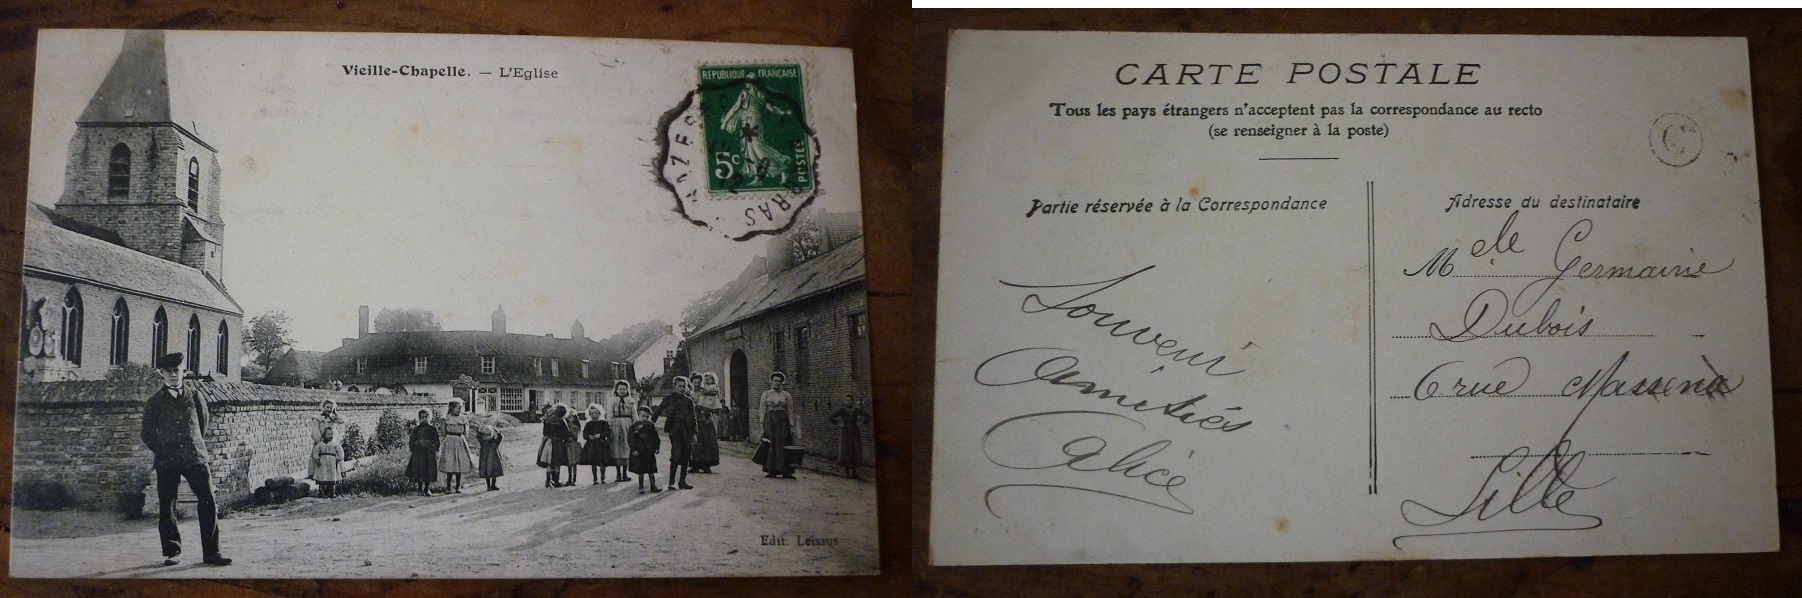 Vieille-Chapelle. — L'Eglise
REPUBLIQUE FRANÇAISE
5c
POSTES
Edit. Leissus
CARTE POSTALE
Tous les pays étrangers n'acceptent pas la correspondance au recto
(se renseigner à la poste)
C
Partie réservée à la Correspondance
Souvenir
Amitiés
Alice
Adresse du destinataire
Melle Germaine
Dubois
6 rue Massena
Lille